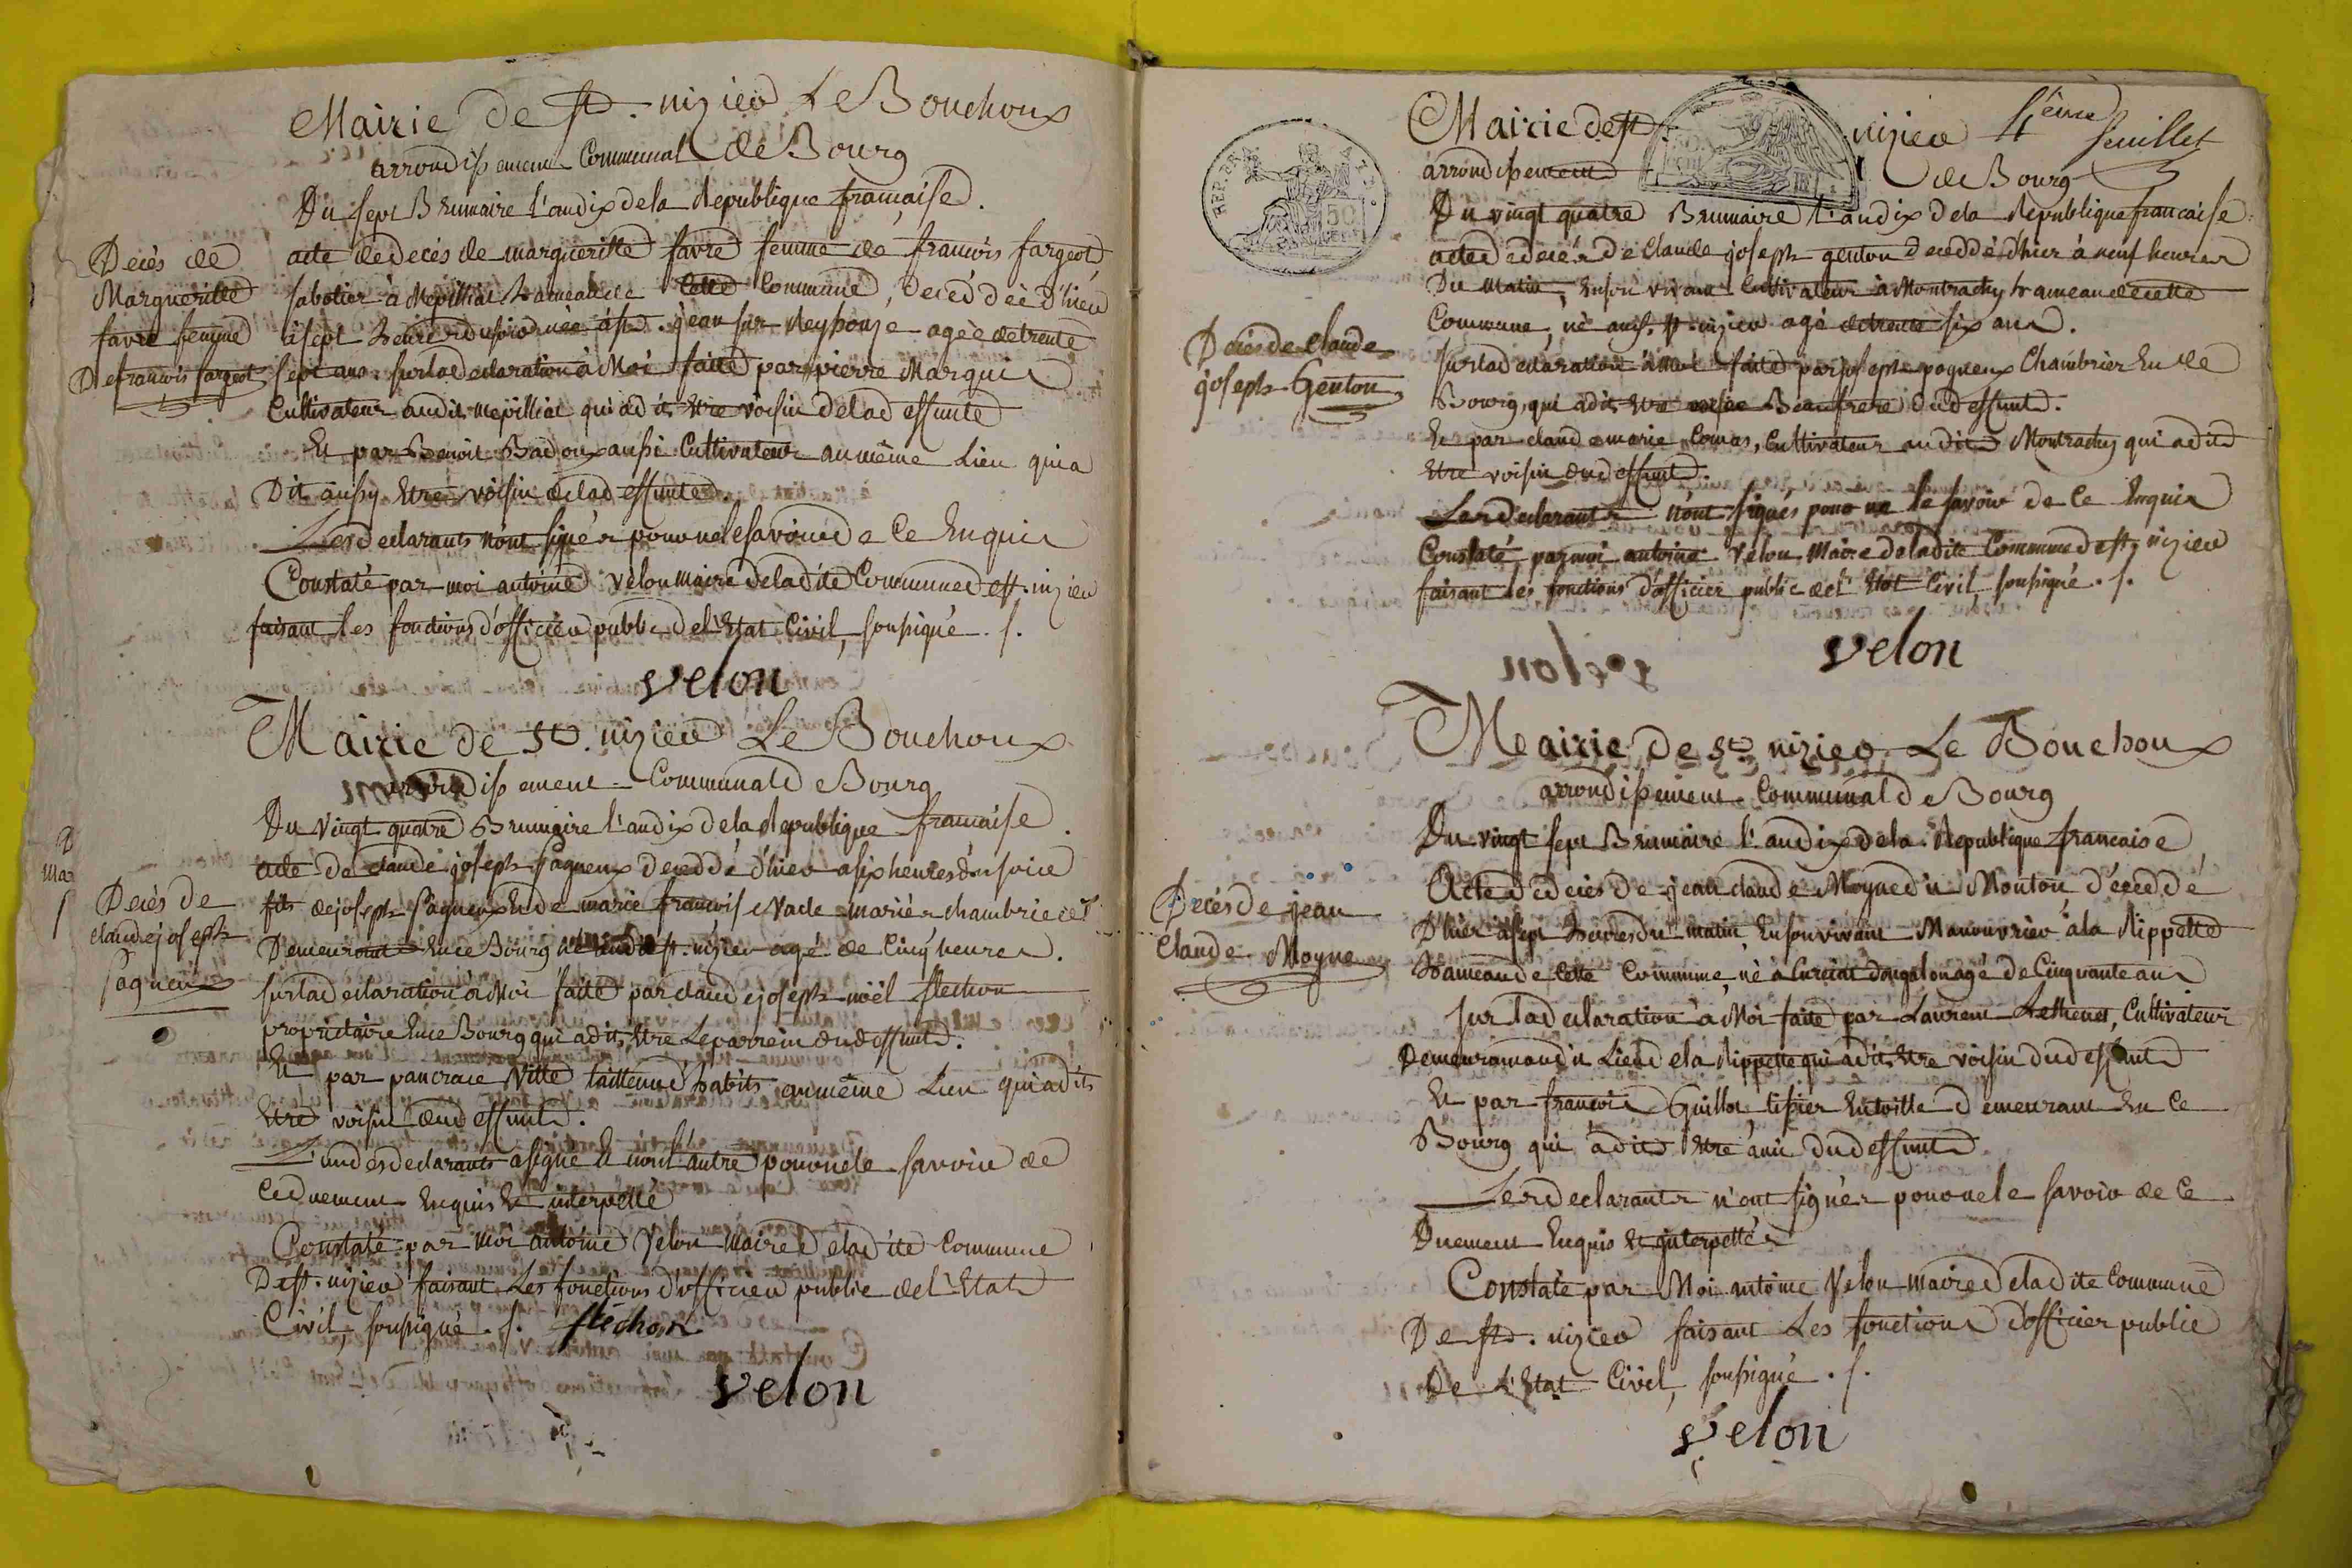 Mairie de St. nizier Le Bouchoux
arrondissement Communal de Bourg
Du sept Brumaire l'an dix de la Republique francaise.
Decès de
Margueritte
favre femme
De francois fargeot
acte de decès de margueritte favre femme de francois fargeot
sabotier à Mepilliat hameau de Cette Commune, decèdèe d'hier
à sept heures du soir née à St. jean sur Reyssouze agèe de trente
sept ans. sur la declaration à Moi faite par pierre Marquis
Cultivateur audit mepilliat qui a dit Etre voisin de la deffunte
Et par Benoit Badoux aussi Cultivateur au même Lieu qui a
Dit aussy Etre voisin de la deffunte.
Les declarants n'ont signés pour ne le savoir de Ce Enquis
Constaté par moi antoine velon Maire de la dite Commune de St. nizier
faisant les fonctions d'officier public de l'Etat Civil, soussigné. s.
velon
Mairie de St. nizier Le Bouchoux
arrondissement Communal de Bourg
Du vingt quatre Brumaire l'an dix de la Republique francaise.
Decès de
claude joseph
pagneux
acte de claude joseph pagneux decedé d'hier a six heures du soir
fils de joseph pagneux Et de marie francoise vade mariés chambrier et
Demeurant En ce Bourg né audit St. nizier agé de Cinq heures.
sur la declaration à Moi faite par claude joseph noël flechon
propriétaire En ce Bourg qui a dit Etre Le parrein du deffunt.
Et par pancrace Vitte tailleur d'habits au même Lieu qui a dit
Etre voisin du deffunt.
L'un des declarants a signé Et non l'autre pour ne le savoir de
Ce duement Enquis Et interpellé
Constaté par Moi antoine Velon Maire de la dite Commune
De St. nizier faisant Les fonctions d'officier public de l'Etat
Civil, soussigné. s. flechon
velon
Mairie de St. nizier 4ème feuillet
arrondissement de Bourg
REP. FRA.
50
CENT
Du vingt quatre Brumaire l'an dix de la Republique francaise.
Decès de claude
joseph Genton
acte de decès de Claude joseph genton decedé d'hier à neuf heures
Du matin, En son vivant Cultivateur à Montrachy hameau de cette
Commune, né aussi St. nizier agé de trente six ans.
sur la declaration à Moi faite par joseph pagneux Chambrier En ce
Bourg, qui a dit Etre Beaufrere du deffunt.
Et par claude marie Comas, Cultivateur audit Montrachy qui a dit
Etre voisin du deffunt.
Les declarants n'ont signés pour ne le savoir de Ce Enquis
Constaté par moi antoine velon Maire de la dite Commune de St. nizier
faisant les fonctions d'officier public de l'Etat Civil soussigné. s.
velon
Mairie de St. nizier Le Bouchoux
arrondissement Communal de Bourg
Du vingt sept Brumaire l'an dix de la Republique francaise
Decès de jean
Claude Moyne
Acte de decès de jean claude Moyne dit Mouton, decedé
D'hier à sept heures du matin, En son vivant Manouvrier à la Rippette
hameau de Cette Commune, né à Curciat dongalon agé de Cinquante ans
sur la declaration à Moi faite par Laurent Lethenet, Cultivateur
Demeurant audit Lieu de la Rippette qui a dit Etre voisin du deffunt
Et par francois Guillot tissier En toille demeurant En Ce
Bourg qui a dit Etre ami du deffunt.
Les declarants n'ont signés pour ne le savoir de Ce
Duement Enquis Et interpellés
Constaté par Moi antoine Velon maire de la dite Commune
De St. nizier faisant Les fonctions d'officier public
De L'Etat Civil, soussigné. s.
velon